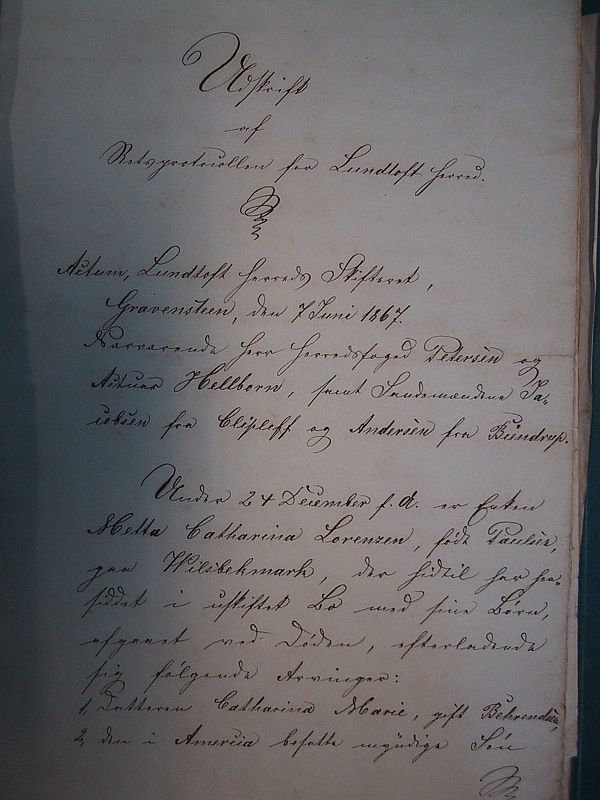 Udskrift
af
Retsprotocollen for Lundtoft Herred.
Actum, Lundtoft Herreds Skifteret,
Gravensteen, den 7 Juni 1867.
Nærværende Herr Herredsfoged Petersen og
Actuar Hellborn, samt Sandemændene Ja-
cobsen fra Clipleff og Andersen fra Biendrup.
Under 24 December f. A. er Enken
Metta Catharina Lorenzen, født Paulsen,
paa Wilsbekmark, der hidtil har hen-
siddet i uskiftet Bo med sine Børn,
afgaaet ved Døden, efterladende
sig følgende Arvinger:
1, Datteren Catharina Marie, gift Behrendsen,
2, den i Amercia besatte myndige Søn